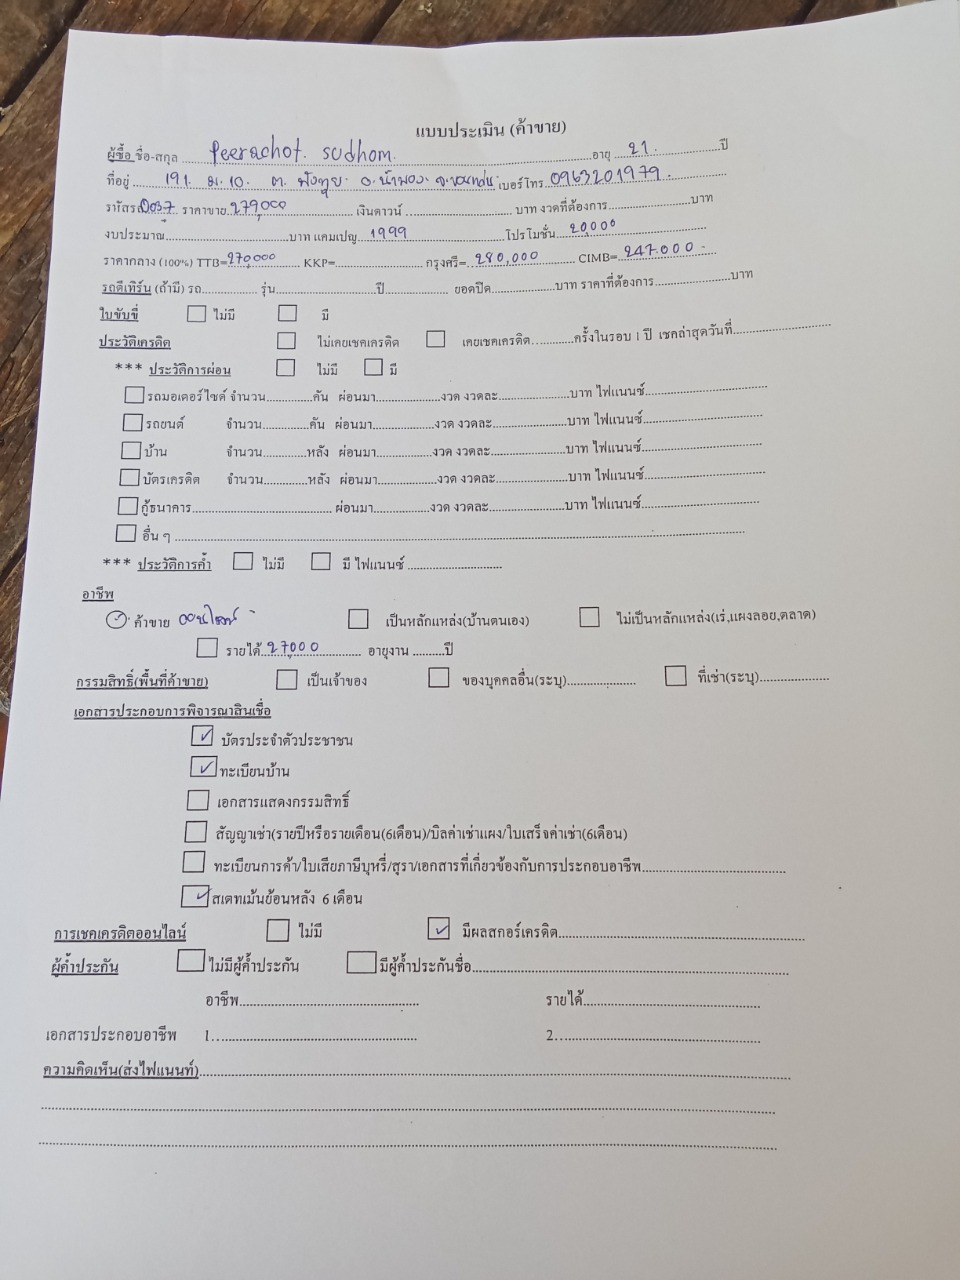 แบบประเมิน (ค้าขาย)
ผู้ซื้อ ชื่อ-สกุล Peerachot. sudhom. อายุ 21. ปี
ที่อยู่ 191. ม.10. ต. พังทุย. อ.น้ำพอง. จ.ขอนแก่น. เบอร์โทร 0963201979.
รหัสรถ 0037 ราคาขาย 279,000 เงินดาวน์ บาท งวดที่ต้องการ บาท
งบประมาณ บาท แคมเปญ 1999 โปรโมชั่น 20,000
ราคากลาง (100%) TTB= 270,000 KKP= กรุงศรี= 280,000 CIMB= 247.000.-
รถตีเทิร์น (ถ้ามี) รถ รุ่น ปี ยอดปิด บาท ราคาที่ต้องการ บาท
ใบขับขี่ ไม่มี มี
ประวัติเครดิต ไม่เคยเชคเครดิต เคยเชคเครดิต ครั้งในรอบ 1 ปี เชคล่าสุดวันที่
*** ประวัติการผ่อน ไม่มี มี
รถมอเตอร์ไซต์ จำนวน คัน ผ่อนมา งวด งวดละ บาท ไฟแนนซ์
รถยนต์ จำนวน คัน ผ่อนมา งวด งวดละ บาท ไฟแนนซ์
บ้าน จำนวน หลัง ผ่อนมา งวด งวดละ บาท ไฟแนนซ์
บัตรเครดิต จำนวน หลัง ผ่อนมา งวด งวดละ บาท ไฟแนนซ์
กู้ธนาคาร ผ่อนมา งวด งวดละ บาท ไฟแนนซ์
อื่น ๆ
*** ประวัติการค้ำ ไม่มี มี ไฟแนนซ์
อาชีพ
ค้าขาย ออนไลน์ เป็นหลักแหล่ง(บ้านตนเอง) ไม่เป็นหลักแหล่ง(เร่,แผงลอย,ตลาด)
รายได้ 27,000 อายุงาน ปี
กรรมสิทธิ์(พื้นที่ค้าขาย) เป็นเจ้าของ ของบุคคลอื่น(ระบุ) ที่เช่า(ระบุ)
เอกสารประกอบการพิจารณาสินเชื่อ
บัตรประจำตัวประชาชน
ทะเบียนบ้าน
เอกสารแสดงกรรมสิทธิ์
สัญญาเช่า(รายปีหรือรายเดือน(6เดือน)/บิลค่าเช่าแผง/ใบเสร็จค่าเช่า(6เดือน)
ทะเบียนการค้า/ใบเสียภาษีบุหรี่/สุรา/เอกสารที่เกี่ยวข้องกับการประกอบอาชีพ
สเตทเม้นย้อนหลัง 6 เดือน
การเชคเครดิตออนไลน์ ไม่มี มีผลสกอร์เครดิต
ผู้ค้ำประกัน ไม่มีผู้ค้ำประกัน มีผู้ค้ำประกันชื่อ
อาชีพ รายได้
เอกสารประกอบอาชีพ 1 2
ความคิดเห็น(ส่งไฟแนนท์)